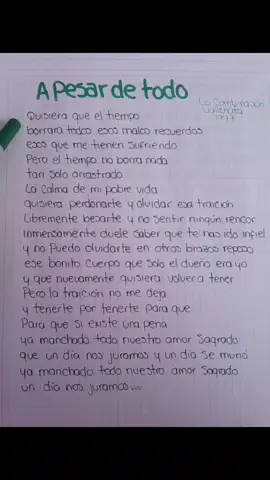 A pesar de todo
La Combinación
Vallenata
Quisiera que el tiempo
borrara todos esos malos recuerdos
esos que me tienen sufriendo
Pero el tiempo no borra nada
tan solo arrastrado
La calma de mi pobre vida
quisiera perdonarte y olvidar esa traición
Libremente besarte y no sentir ningún rencor
Inmensamente duele saber que te has ido infiel
y no puedo olvidarte en otros brazos reposo
ese bonito cuerpo que solo el dueño era yo
y que nuevamente quisiera volver a tener
Pero la traición no me deja
y tenerte por tenerte para que
Para que si existe una pena
ya manchado todo nuestro amor sagrado
que un día nos juramos y un día se murió
ya manchado todo nuestro amor sagrado
un día nos juramos...